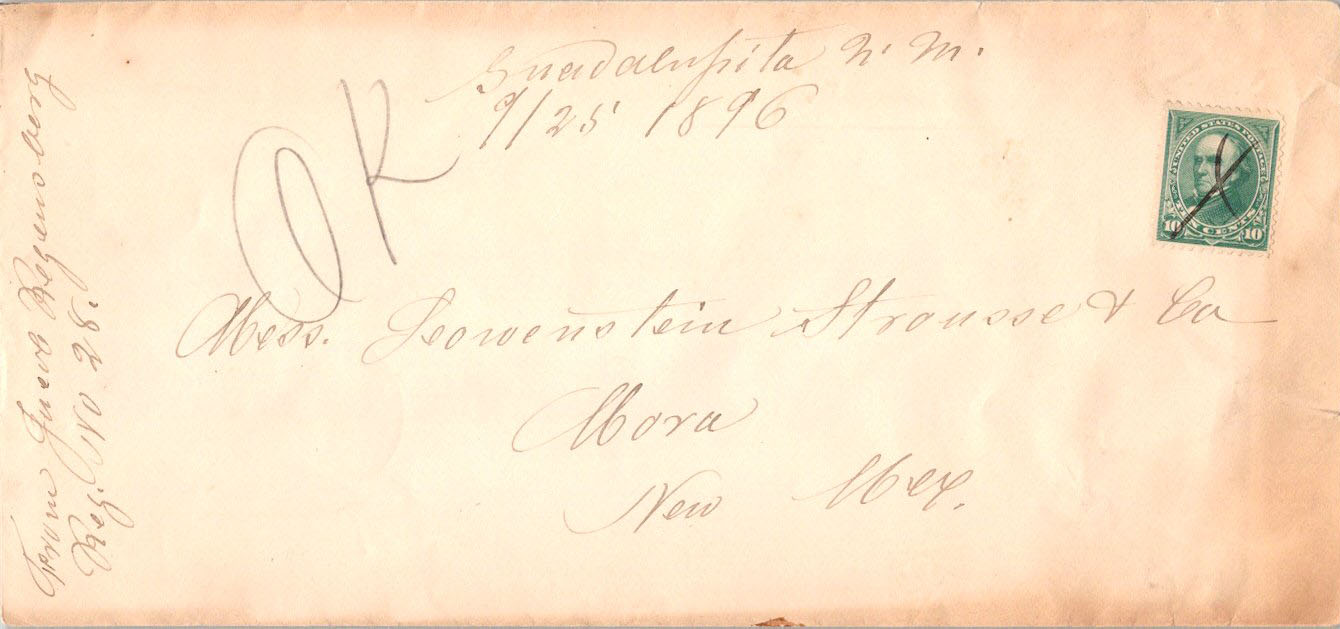 Guadalupita N. M.
9/25 1896
OK
UNITED STATES POSTAGE
TEN CENTS
10 10
Mess. Lowenstein Strousse & Co
Mora
New Mex.
From Jacob Regensberg
Reg. No 28.